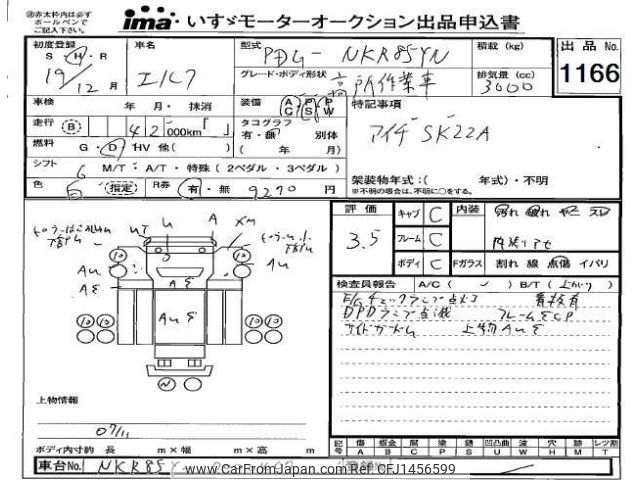 ㊟赤太枠内は必ず
ボールペンで
ご記入下さい。
ima いすゞモーターオークション出品申込書
初度登録 S・H・R 19/12月
車名 エルフ
型式 PDG- NKR85YN
積載 (kg)
出品 No. 1166
グレード・ボディ形状 高所作業車
排気量 (cc) 3000
車検 年 月・ 抹消
装備 AC PS PW
特記事項
走行 (B) 42 000km「 」
タコグラフ 有・無 別体
( 年 月)
アイチ SK22A
燃料 G・D HV 他( )
シフト 6 M/T: A/T・特殊 (2ペダル・3ペダル)
架装物年式:( 年式)・不明
※不明の場合は、不明に○をする。
色 白 (指定) R券 有・無 9270 円
評価 3.5
キャブ C
内装 汚れ 破れ ヤニ スレ
フレーム C
内装リアセ
ボディ C
Fガラス 割れ 線 点傷 イバリ
検査員報告 A/C ( ✓ ) B/T (上がり)
E/Gチェックランプ点灯 青板有
DPDランプ点滅 フレームSCP
サイドガードム 上物AUE
UT U A XM
AU AU
AE AE
AUE
上物情報
07/11
ボディ内寸約 長 m×幅 m×高 m
記号 傷 A 板金 B 腐 C 塗 P 錆 S 凹凸曲 U 波 W 穴 H 跡 M レツ割 T
車台No. NKR85Y-
www.CarFromJapan.com Ref: CFJ1456599